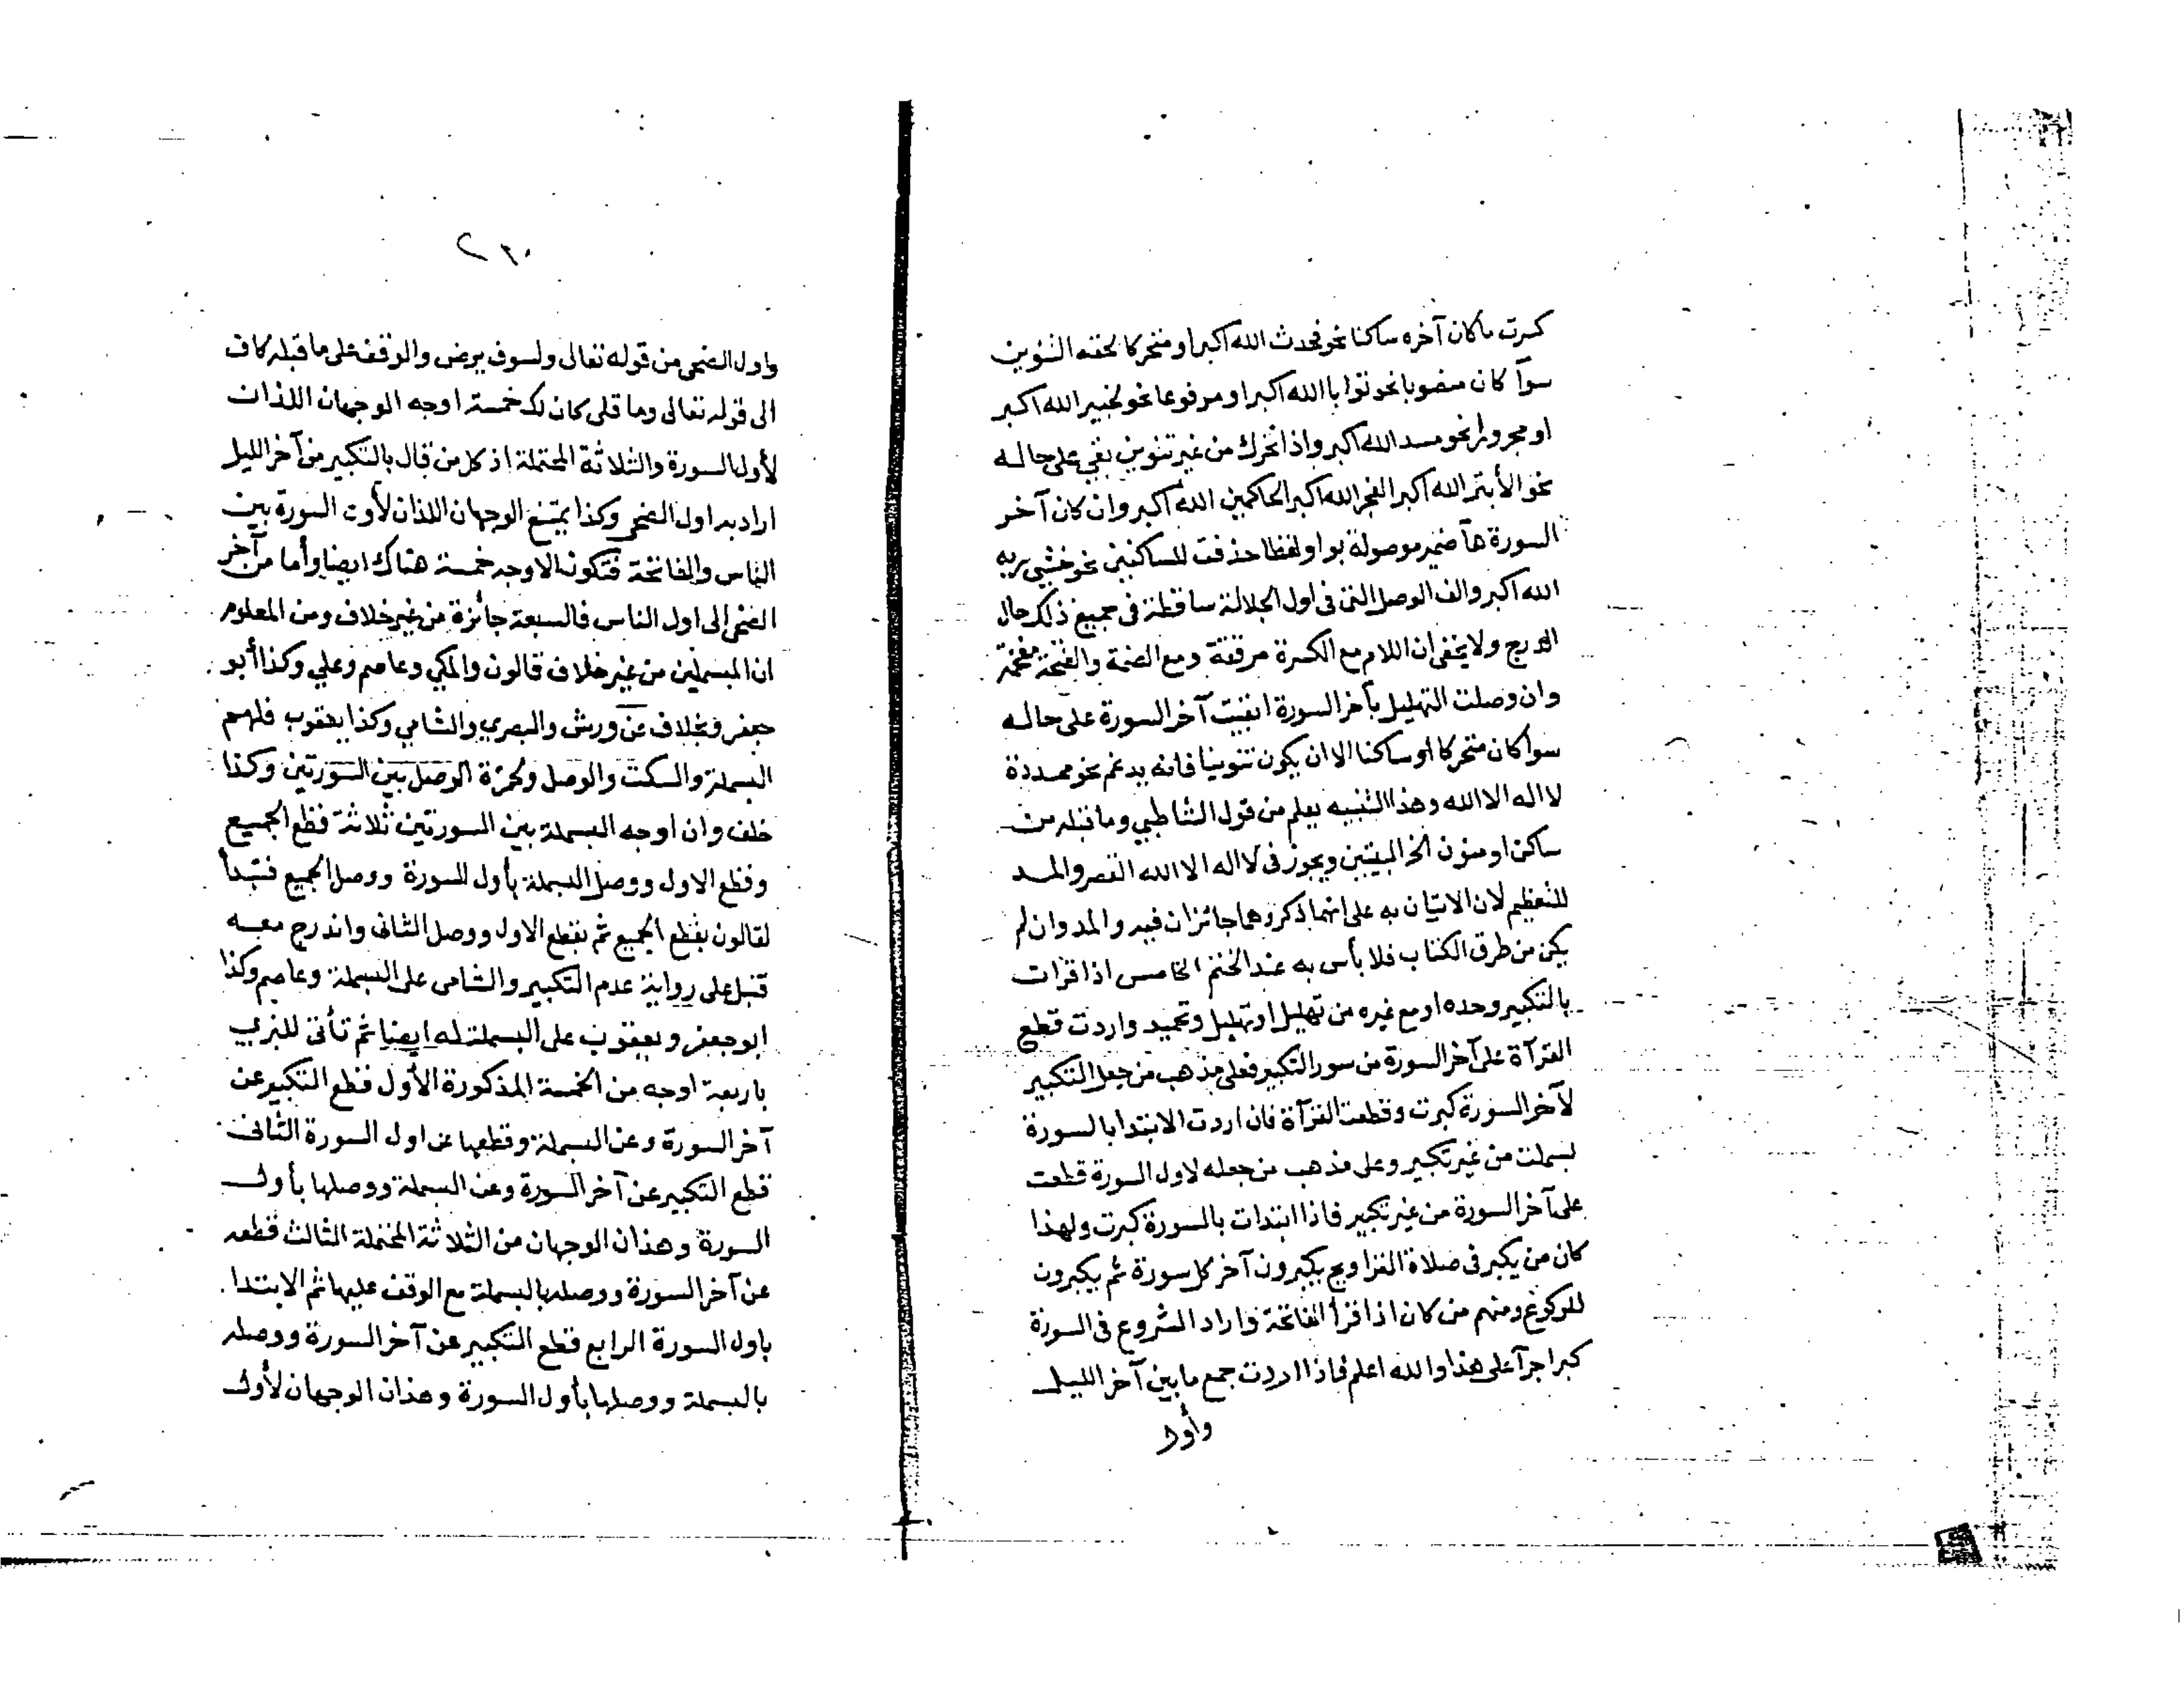 كسرت ماكان آخره ساكنا نحو فحدث الله اكبر او متحركا لحقه التنوين
سوآ كان منصوبا نحو توابا الله اكبر او مرفوعا نحو لخبير الله اكبر
او مجرورا نحو مسد الله اكبر واذا تحرك من غير تنوين بقي على حاله
نحو الأبتر الله اكبر الفجر الله اكبر الحاكمين الله اكبر وان كان آخر
السورة هآ ضمير موصولة بواو لفظا حذفت للساكنين نحو خشي ربه
الله اكبر والف الوصل التى فى اول الجلالة ساقطة فى جميع ذلك حال
الدرج ولا يخفى ان اللام مع الكسرة مرققة ومع الضمة والفتحة مفخمة
وان وصلت التهليل بآخر السورة ابقيت آخر السورة على حاله
سوا كان متحركا او ساكنا الا ان يكون تنوينا فانه يدغم نحو ممددة
لا اله الا الله وهذا التنبيه يعلم من قول الشاطبي وما قبله من
ساكن او منون الخ البيتين ويجوز فى لا اله الا الله القصر والمد
للتعظيم لان الاتيان به على انها ذكر وهما جائزان فيه والمد وان لم
يكن من طرق الكتاب فلا بأس به عند الختم الخامس اذا قرات
بالتكبير وحده او مع غيره من تهليل او تهليل وتحميد واردت قطع
القرآة على آخر السورة من سور التكبير فعلى مذهب من جعل التكبير
لآخر السورة كبرت وقطعت القرآة فان اردت الابتدا بالسورة
بسملت من غير تكبير وعلى مذهب من جعله لاول السورة قطعت
على آخر السورة من غير تكبير فاذا ابتدات بالسورة كبرت ولهذا
كان من يكبر فى صلاة التراويح يكبرون آخر كل سورة ثم يكبرون
للركوع ومنهم من كان اذا قرأ الفاتحة واراد الشروع فى السورة
كبر اجرآ على هذا والله اعلم فاذا اردت جمع ما بين آخر الليل
وأول
٢١٠
واول الضحى من قوله تعالى ولسوف يرضى والوقف على ما قبله كاف
الى قوله تعالى وما قلى كان لك خمسة اوجه الوجهان اللذان
لأول السورة والثلاثة المحتملة اذ كل من قال بالتكبير من آخر الليل
اراد به اول الضحى وكذا يمتنع الوجهان اللذان لأول السورة بين
الناس والفاتحة فتكون الاوجه خمسة هناك ايضا وأما من آخر
الضحى الى اول الناس فالسبعة جائزة من غير خلاف ومن المعلوم
ان المبسملين من غير خلاف قالون والمكي وعاصم وعلي وكذا أبو
جعفر وبخلاف عن ورش والبصري والشامي وكذا يعقوب فلهم
البسملة والسكت والوصل ولحمزة الوصل بين السورتين وكذا
خلف وان اوجه البسملة بين السورتين ثلاثة قطع الجميع
وقطع الاول ووصل البسملة بأول السورة ووصل الجميع فتبدأ
لقالون بقطع الجميع ثم بقطع الاول ووصل الثانى واندرج معه
قنبل على رواية عدم التكبير والشامى على البسملة وعاصم وكذا
ابو جعفر ويعقوب على البسملة له ايضا ثم تأتى للبزي
باربعة اوجه من الخمسة المذكورة الأول قطع التكبير عن
آخر السورة وعن البسملة وقطعها عن اول السورة الثانى
قطع التكبير عن آخر السورة وعن البسملة ووصلها بأول
السورة وهذان الوجهان من الثلاثة المحتملة الثالث قطعه
عن آخر السورة ووصله بالبسملة مع الوقف عليها ثم الابتدا
باول السورة الرابع قطع التكبير عن آخر السورة ووصله
بالبسملة ووصلها بأول السورة وهذان الوجهان لأول